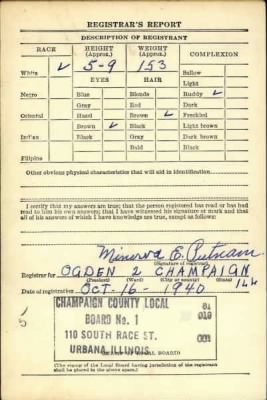 REGISTRAR'S REPORT
DESCRIPTION OF REGISTRANT
RACE HEIGHT (Approx.) WEIGHT (Approx.) COMPLEXION
White ✓ 5-9 153 Sallow
EYES HAIR Light
Negro Blue Blonde Ruddy ✓
Gray Red Dark
Oriental Hazel Brown ✓ Freckled
Brown ✓ Black Light brown
Indian Black Gray Dark brown
Bald Black
Filipino
Other obvious physical characteristics that will aid in identification
I certify that my answers are true; that the person registered has read or has had
read to him his own answers; that I have witnessed his signature or mark and that
all of his answers of which I have knowledge are true, except as follows:
Minerva E. Putnam
(Signature of registrar)
Registrar for OGDEN 2 CHAMPAIGN ILL
(Precinct) (Ward) (City or county) (State)
Date of registration OCT-16-1940
CHAMPAIGN COUNTY LOCAL 81
BOARD No. 1 019
110 SOUTH RACE ST. 001
URBANA, ILLINOIS
(The stamp of the Local Board having jurisdiction of the registrant
shall be placed in the above space.)